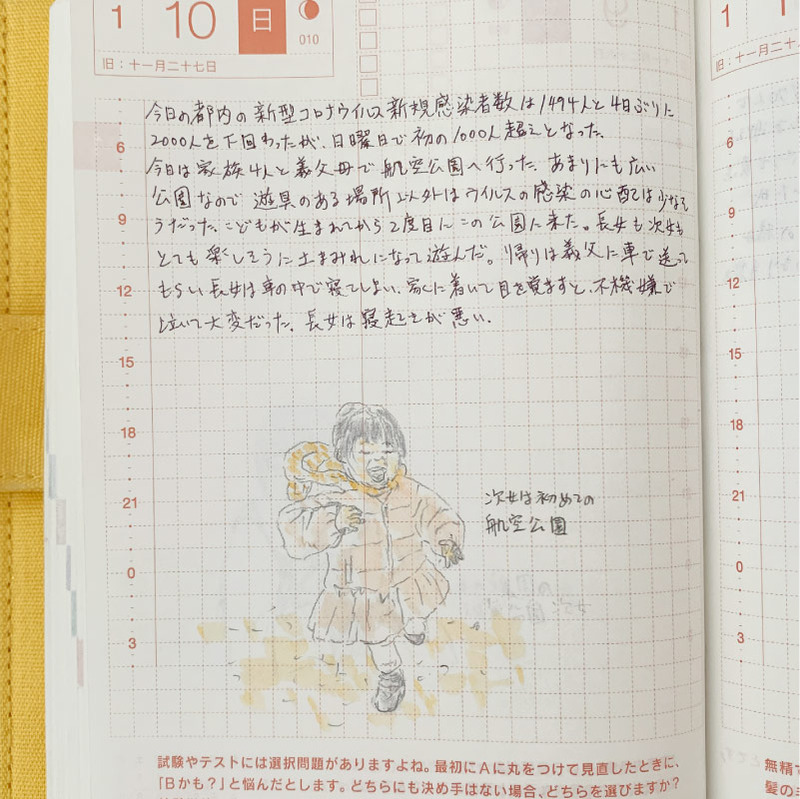 1 10 日
010
旧：十一月二十七日
今日の都内の新型コロナウイルス新規感染者数は1494人と4日ぶりに
2000人を下回わったが、日曜日で初の1000人超えとなった。
今日は家族4人と義父母で航空公園へ行った。あまりにも広い
公園なので遊具のある場所以外はウイルスの感染の心配は少なそ
うだった。こどもが生まれてから2度目にこの公園に来た。長女も次女も
とても楽しそうに土まみれになって遊んだ。帰りは義父に車で送って
もらい長女は車の中で寝てしまい、家に着いて目を覚ますと、不機嫌で
泣いて大変だった。長女は寝起きが悪い。
6
9
12
15
18
21
0
3
次女は初めての
航空公園
試験やテストには選択問題がありますよね。最初にAに丸をつけて見直したときに、
「Bかも？」と悩んだとします。どちらにも決め手はない場合、どちらを選びますか？
1 1
旧：十一月二
6
9
12
15
18
21
0
3
無精で
髪の